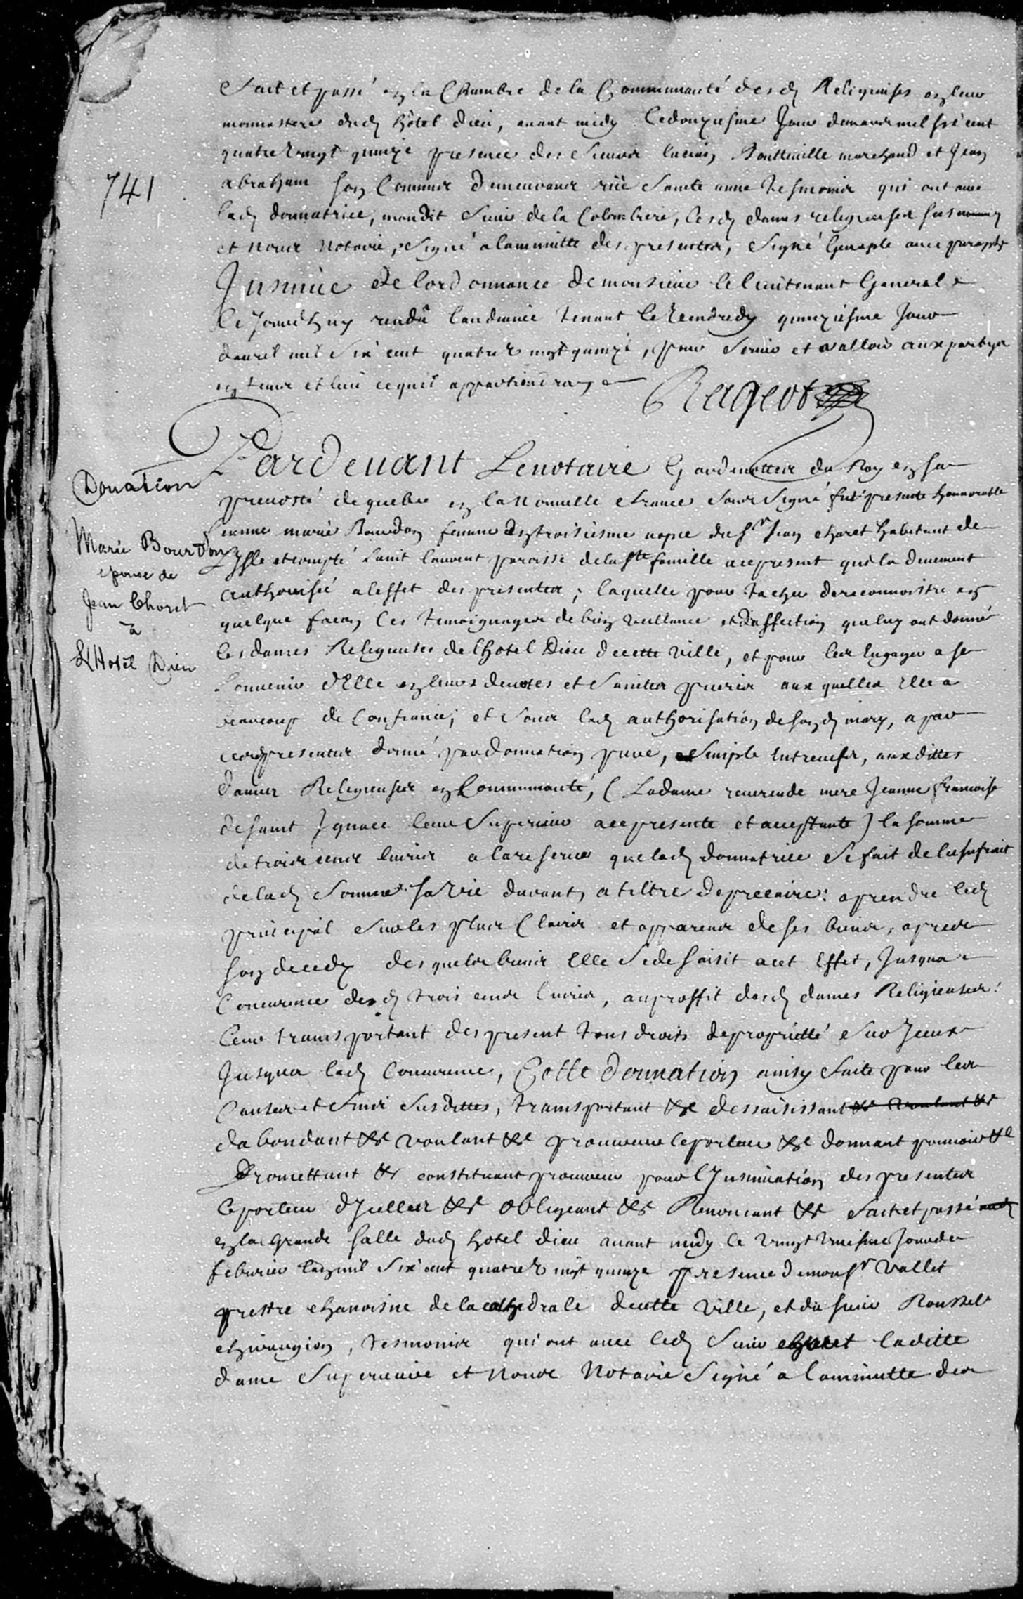 fait et passé en la Chambre de la Communauté desd Religieuses en leur
monastere dud hôtel dieu, avant midy le douziesme Jour de mil six cent
quatre vingt quinze presence des Sieurs lucien Boutteville marchand et Jean
741
abraham son Commis demeurans rüe Sainte anne tesmoins qui ont avec
lad donnatrice, mondit Sieur de la Colombiere, lesd dames religieuses
et nous Notaire, Signé a la minutte des presentes, Signé Genaple avec paraphe
Insinué de lordonnance de monsieur le lieutenant General
Ce Jourdhuy rendû laudiance tenant le Vendredy quinziesme Jour
davril mil Six cent quatre vingt quinze, pour Servir et valloir aux partyes
en temps et lieu ce quil appartiendra
Rageot
Donation
Marie Bourdon
epouse de
Jean Choret
à
L'Hotel Dieu
Pardevant Le notaire Gardenottes du Roy en sa
prevosté de quebec en la Nouvelle france Sousigné fut presente honnorable
femme marie Bourdon femme en troisiesme nopce du Sr Jean Choret habitant de
Isle et comté Saint laurent paroisse de la Ste famille a ce present qui la deuement
authorisée a leffet des presentes; laquelle pour tacher de reconnoistre en
quelque facon les temoignages de bien veillance et daffection que luy ont donné
les dames Religieuses de lhotel Dieu de cette ville, et pour les Engager a se
Souvenir d'Elle en leurs devotes et Saintes prieres aux quelles Elle a
beaucoup de Confiance; et Sous lad authorisation de sond mary, a par
ces presentes donné par donnation pure, Simple Entrevifs, aux dittes
dames Religieuses en Communauté, (La dame reverende mere Jeanne francoise
de saint Ignace leur Superieure a ce presente et acceptante) la somme
de trois cens livres a la reserve que lad donnatrice Se fait de lusufruit
de lad Somme Sa Vie durant, a tiltre de precaire: a prendre led
principal Sur les plus Clairs et apparens de ses biens, apres
son decedz desquels biens Elle Se desaisit a cet Effet, Jusqua
Concurence desd trois cens livres, au proffit desd dames Religieuses:
leur transportant des present tous droits de proprietté Sur Iceux
Jusqua lad Concurence, Cette donnation ainsy faite pour les
Causes et fins Susdittes, transportant &c dessaisissant &c voulant &c
dabondant &c voulant &c procureur le porteur &c donnant pouvoir &c
Promettant &c constituant procureur pour l'Insinuation des presentes
le porteur d'Icelles &c obligeant &c Renoncant &c fait et passé
en la Grande Salle dud hôtel dieu avant midy le vingt huictiesme Jour de
febvrier mil Six cent quatre vingt quinze presence de monsr Vallet
prestre chanoine de la cathedrale de cette Ville, et du Sieur Roussel
chirurgien, tesmoins qui ont avec led Sieur Choret laditte
dame Superieure et Nous Notaire Signé a la minutte des